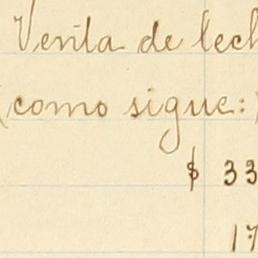 Venta de lech
(como sigue:)
$ 33
17